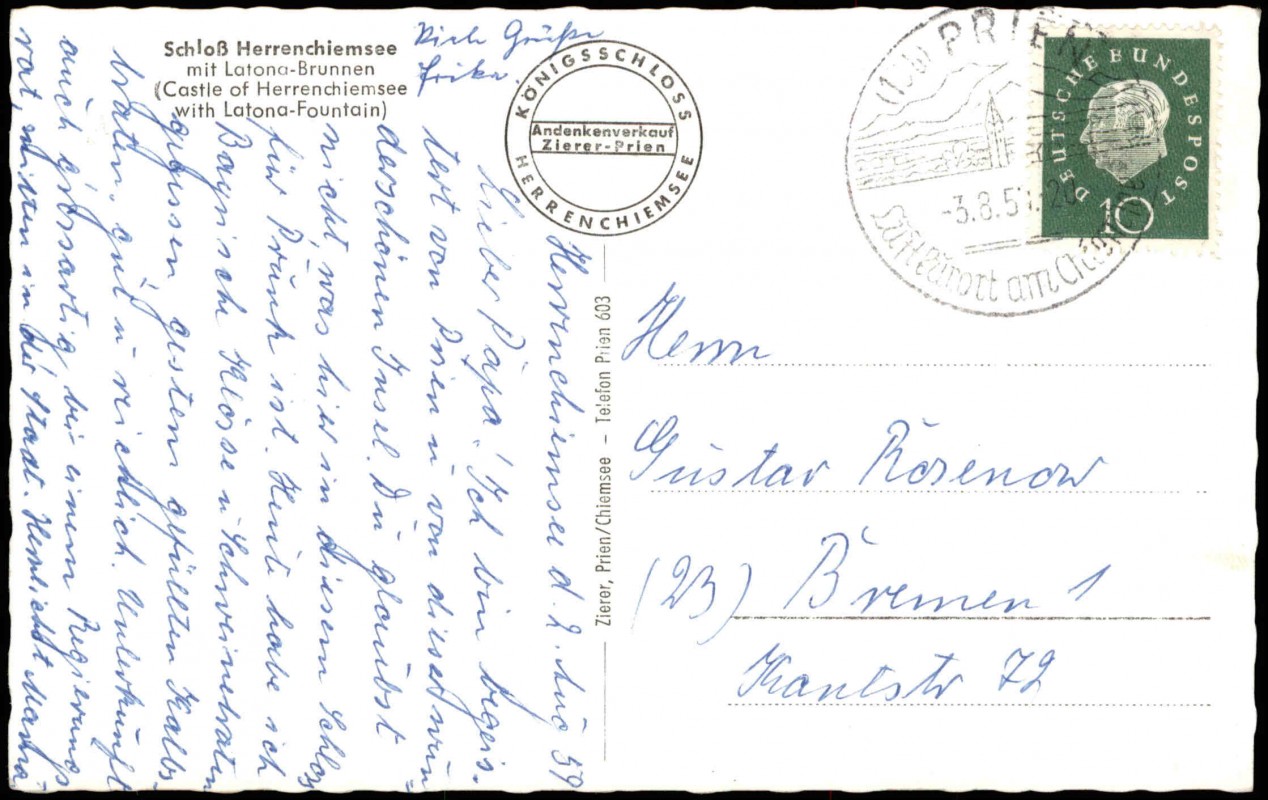 Schloß Herrenchiemsee
mit Latona-Brunnen
(Castle of Herrenchiemsee
with Latona-Fountain)
KÖNIGSSCHLOSS
Andenkenverkauf
Zierer-Prien
HERRENCHIEMSEE
Herrenchiemsee d. 2. Aug 59
Lieber Papa! Ich bin begeis-
tert von Prien u von dieser wun
derschönen Insel. Du glaubst
nicht was hier in diesem Schloß
für Prunk ist. Heute habe ich
Bayrische Klösse u Schweinebraten
gegessen gestern gefüllten Kalbs
braten, gut u reichlich. Unterkunft
auch grossartig bei einem Regierungs
rat, mitten in der Stadt. Herzlichst Martha
Viele Grüße
Erika
Zierer, Prien/Chiemsee – Telefon Prien 603
PRIEN
-3.8.59.20
Luftkurort am Chiemsee
DEUTSCHE BUNDESPOST
10
Herrn
Gustav Rosenow
(23) Bremen 1
Kantstr 72